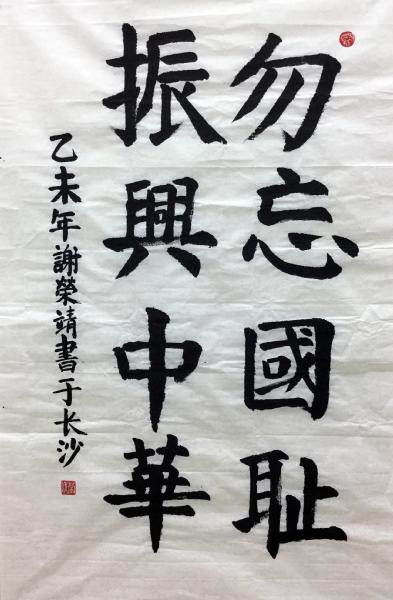 勿忘國耻
振興中華
乙未年謝榮靖書于长沙